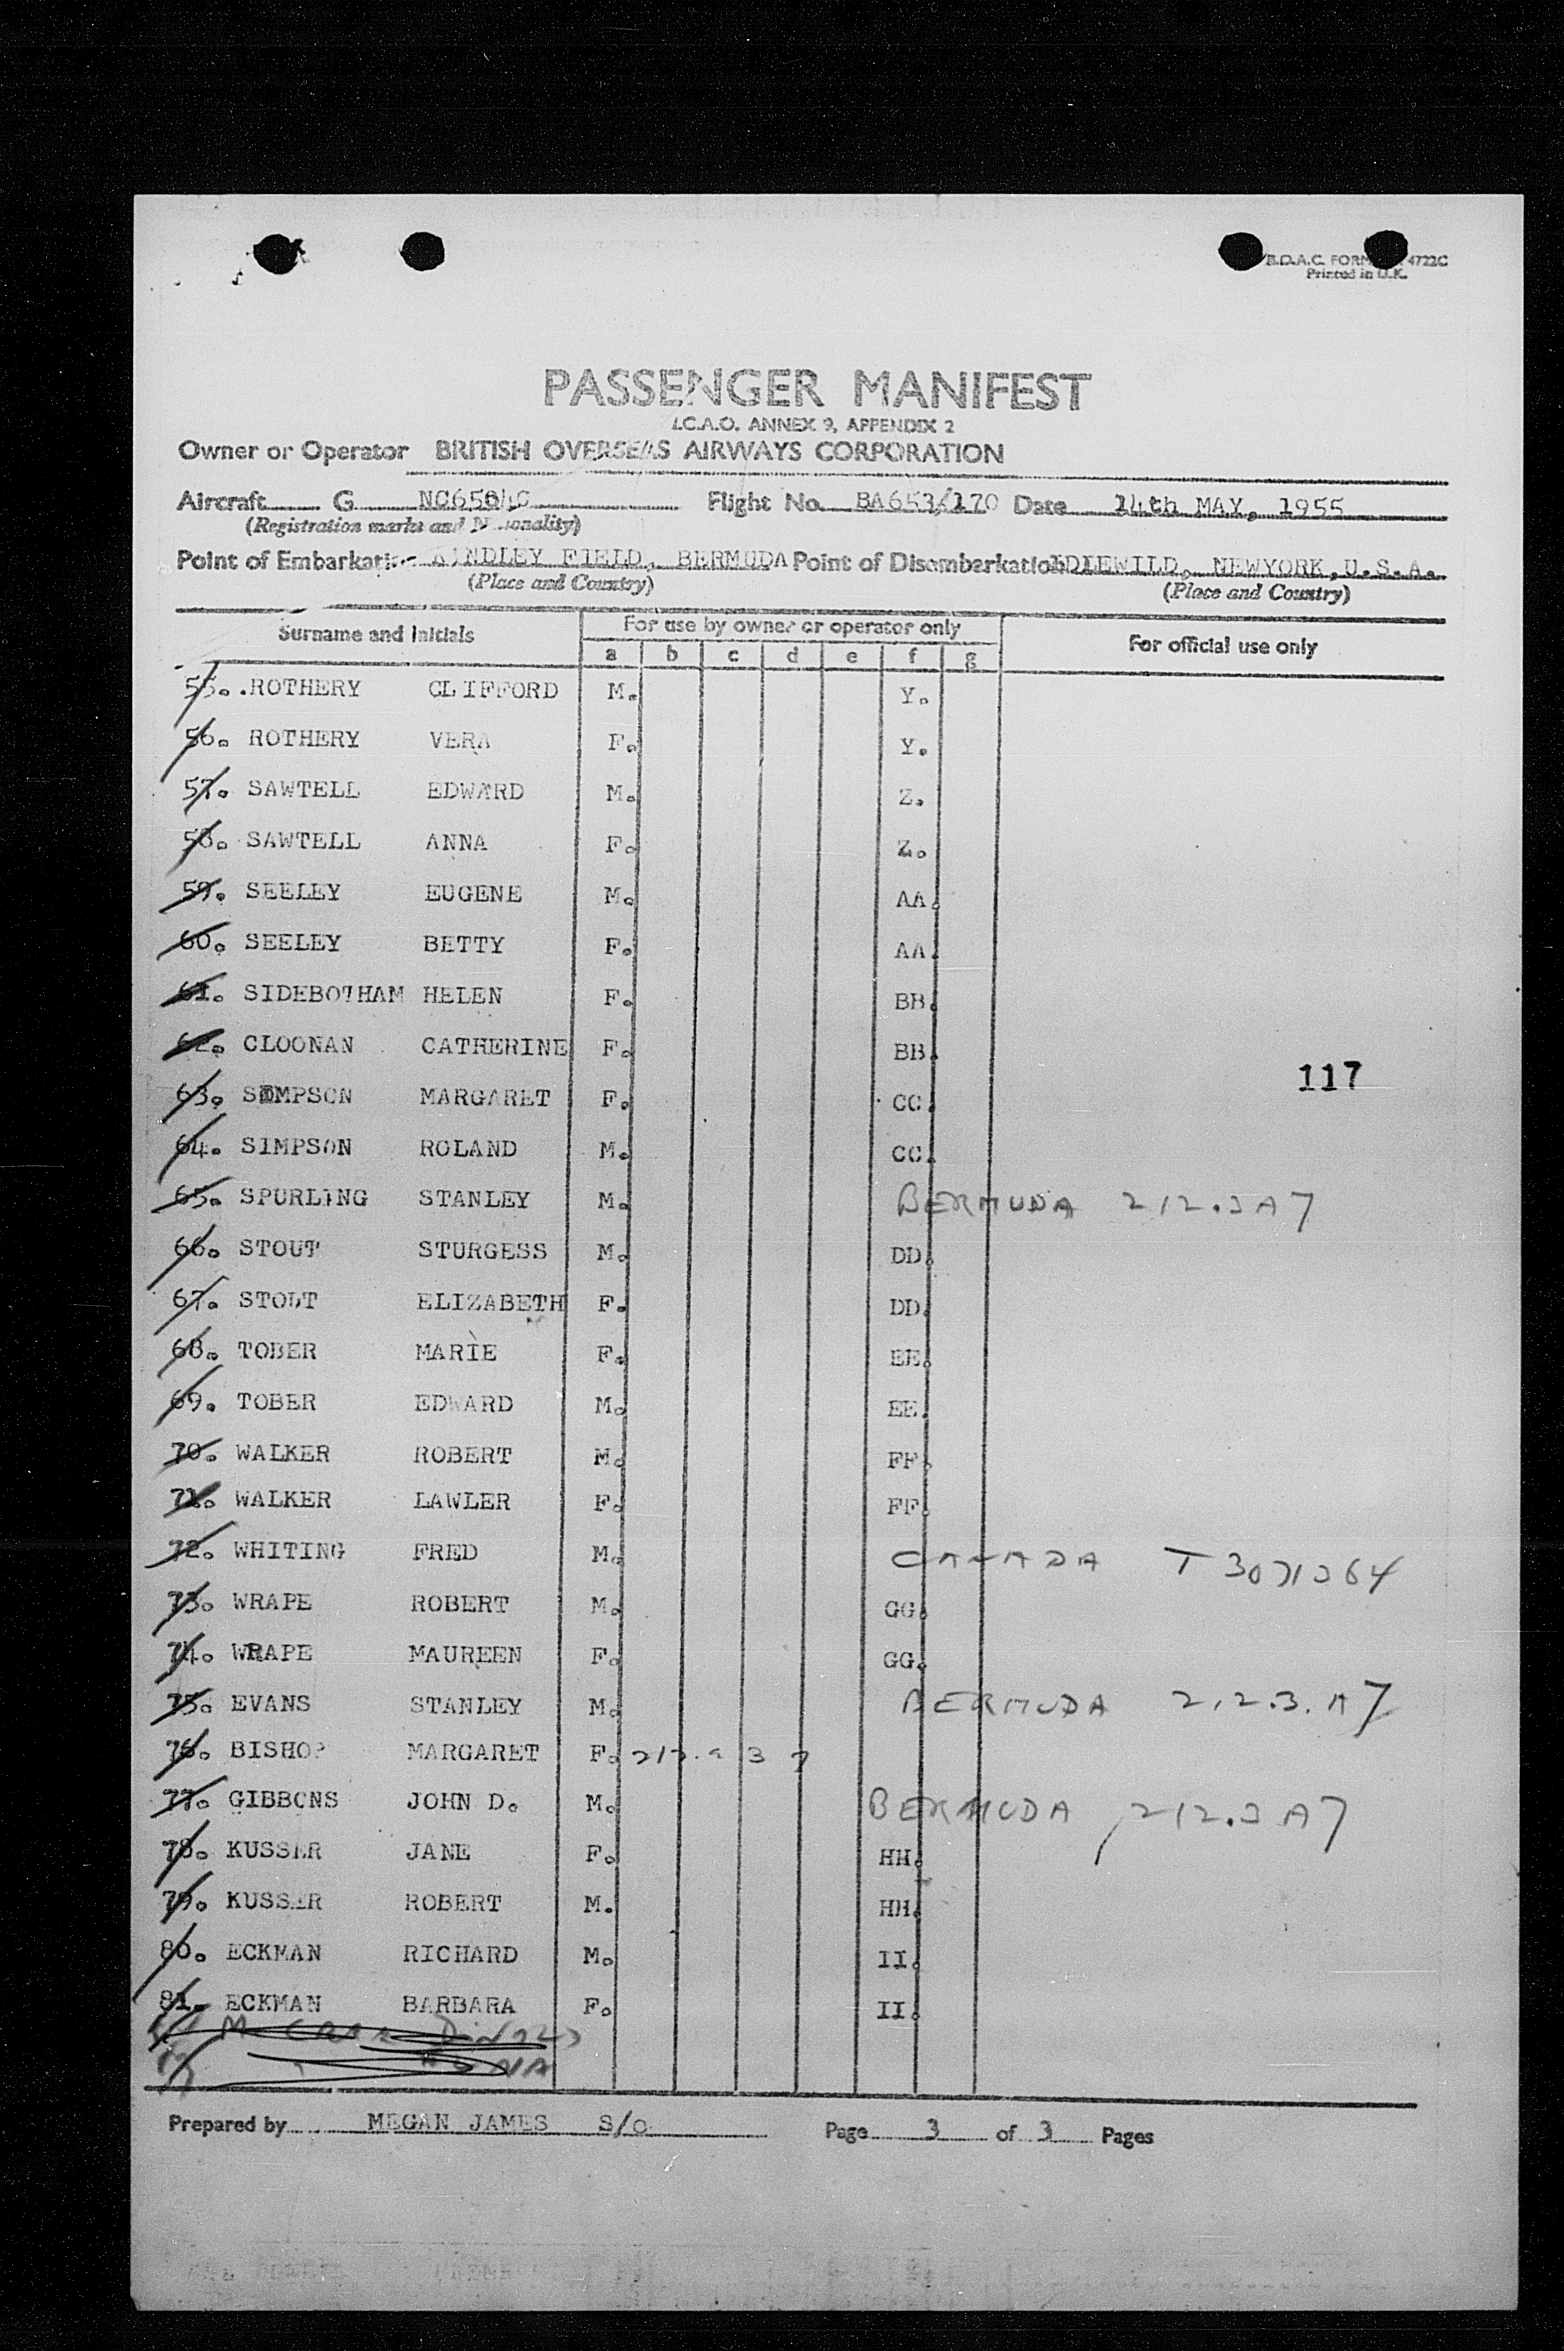 B.O.A.C. FORM 4722C
Printed in U.K.
PASSENGER MANIFEST
I.C.A.O. ANNEX 9, APPENDIX 2
Owner or Operator BRITISH OVERSEAS AIRWAYS CORPORATION
Aircraft G Flight No. BA653/170 Date 14th MAY, 1955
(Registration marks and Nationality)
Point of Embarkation KINDLEY FIELD, BERMUDA Point of Disembarkation IDLEWILD, NEWYORK, U.S.A.
(Place and Country) (Place and Country)
Surname and Initials For use by owner or operator only For official use only
a b c d e f g
55. ROTHERY CLIFFORD M. Y.
56. ROTHERY VERA F. Y.
57. SAWTELL EDWARD M. Z.
58. SAWTELL ANNA F. Z.
59. SEELEY EUGENE M. AA.
60. SEELEY BETTY F. AA.
61. SIDEBOTHAM HELEN F. BB.
62. CLOONAN CATHERINE F. BB.
117
63. SIMPSON MARGARET F. CC.
64. SIMPSON ROLAND M. CC.
65. SPURLING STANLEY M. BERMUDA 212.3A7
66. STOUT STURGESS M. DD.
67. STOUT ELIZABETH F. DD.
68. TOBER MARIE F. EE.
69. TOBER EDWARD M. EE.
70. WALKER ROBERT M. FF.
71. WALKER LAWLER F. FF.
72. WHITING FRED M. CANADA
73. WRAPE ROBERT M. GG.
74. WRAPE MAUREEN F. GG.
75. EVANS STANLEY M. BERMUDA 212.3.A7
76. BISHOP MARGARET F.
77. GIBBONS JOHN D. M. BERMUDA 212.3A7
78. KUSSER JANE F. HH.
79. KUSSER ROBERT M. HH.
80. ECKMAN RICHARD M. II.
81. ECKMAN BARBARA F. II.
Prepared by MEGAN JAMES S/O Page 3 of 3 Pages